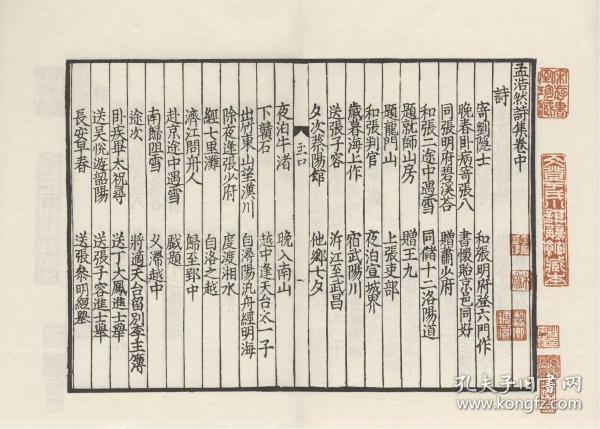 孟浩然詩集卷中
詩
寄劉隱士 和張明府登六門作
晚春卧病寄張八 書懷貽京邑同好
同張明府碧溪荅 贈蕭少府
和張二途中遇雪 同儲十二洛陽道
題就師山房 贈王九
題龍門山 上張吏部
和張判官 夜泊宣城界
歲暮海上作 宿武陽川
送張子容 泝江至武昌
夕次蔡陽館 他鄉七夕
夜泊牛渚 晚入南山
下贛石 越中逢天台太一子
出竹東山望漢川 自潯陽汎舟經明海
除夜逢張少府 渡湘水
經七里灘 自洛之越
濟江問舟人 歸至郢中
赴京途中遇雪 戲題
南歸阻雪 久滯越中
途次 將適天台留別李主簿
卧疾畢太祝尋 送丁大鳳進士舉
送吴悦遊韶陽 送張子容進士舉
長安早春 送張參明經舉
孔夫子旧书网
www.kongfz.com